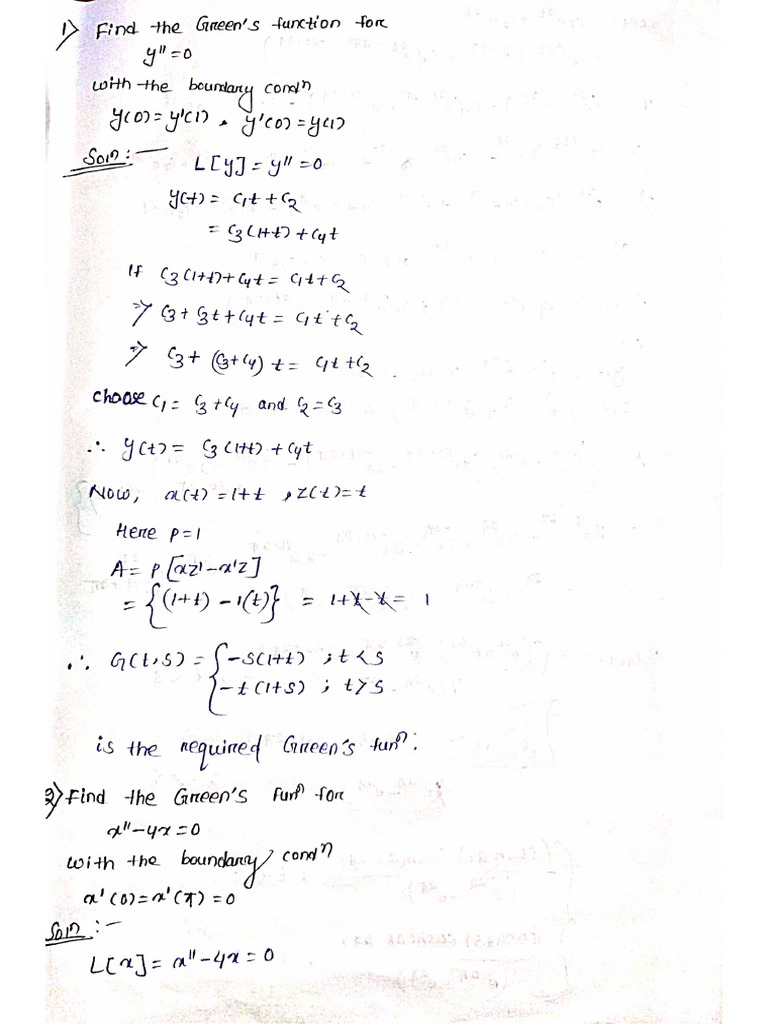 1) Find the Green's function for
y'' = 0
with the boundary condn
y(0) = y'(1) , y'(0) = y(1)
Soln : —
L[y] = y'' = 0
y(t) = c₁t + c₂
= c₃(1+t) + c₄t
If c₃(1+t) + c₄t = c₁t + c₂
⇒ c₃ + c₃t + c₄t = c₁t + c₂
⇒ c₃ + (c₃+c₄) t = c₁t + c₂
choose c₁ = c₃ + c₄ and c₂ = c₃
∴ y(t) = c₃(1+t) + c₄t
Now, x(t) = 1+t , z(t) = t
Here p = 1
A = p [xz' - x'z]
= {(1+t) - 1(t)} = 1+t-t = 1
∴ G(t,s) = { -s(1+t) ; t < s
-t(1+s) ; t > s
is the required Green's funⁿ.
2) Find the Green's funⁿ for
x'' - 4x = 0
with the boundary condn
x'(0) = x'(π) = 0
Soln : —
L[x] = x'' - 4x = 0